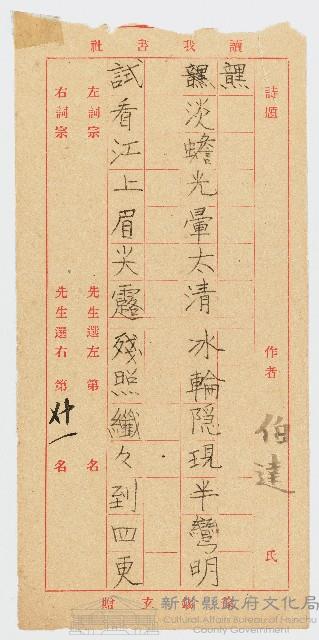 讀我書社
詩題 作者 伯達 氏
淡蟾光暈太清冰輪隐現半彎明
試看江上眉尖露殘照纖々到四更
左詞宗 先生選左第 名
右詞宗 先生選右第 廿一 名
立贈
新竹縣政府文化局
Cultural Affairs Bureau of Hsinchu
County Government